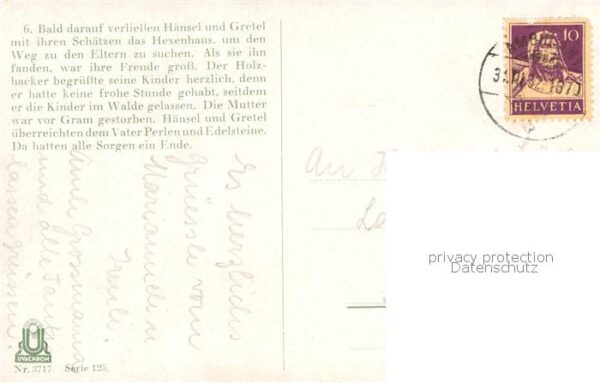 6. Bald darauf verließen Hänsel und Gretel
mit ihren Schätzen das Hexenhaus, um den
Weg zu den Eltern zu suchen. Als sie ihn
fanden, war ihre Freude groß. Der Holz-
hacker begrüßte seine Kinder herzlich, denn
er hatte keine frohe Stunde gehabt, seitdem
er die Kinder im Walde gelassen. Die Mutter
war vor Gram gestorben. Hänsel und Gretel
überreichten dem Vater Perlen und Edelsteine.
Da hatten alle Sorgen ein Ende.
Es herzlichs
grüessli vom
Marianneli
Anneli Grossmama
und alle
lassen grüssen.
An
10
HELVETIA
privacy protection
Datenschutz
UVACHROM
Nr. 3717. Serie 125.